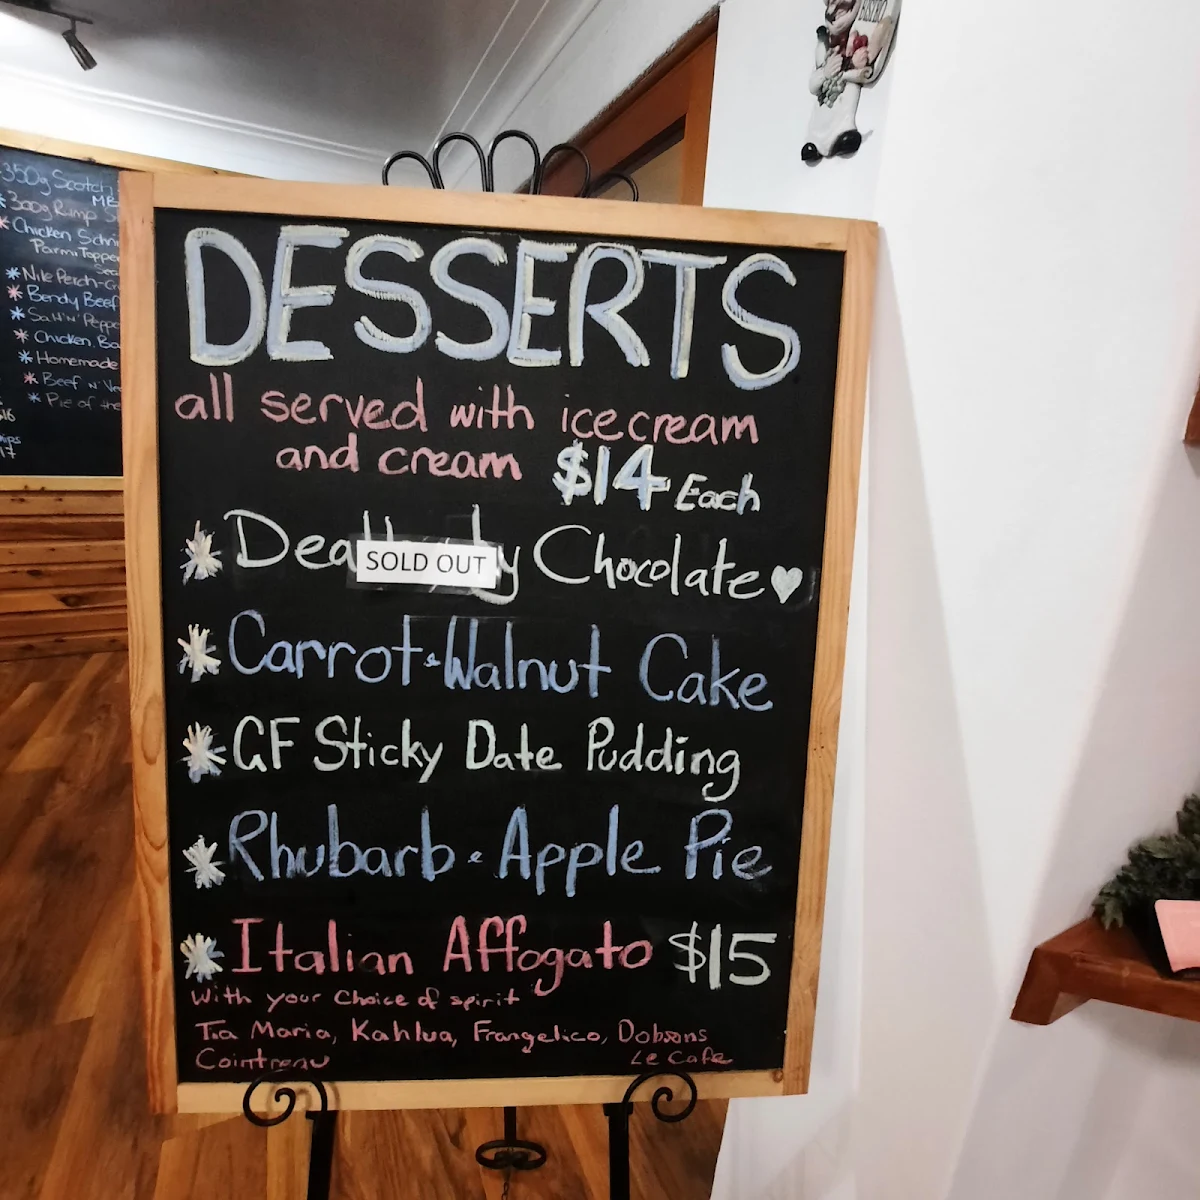 BISTRO
350g Scotch
300g Rump
Chicken Schni
Parmi Topper
Nile Perch
Bendy Beef
Salt 'N' Peppe
Chicken
Homemade
Beef N' Ve
Pie of the
DESSERTS
all served with icecream
and cream $14 Each
SOLD OUT
Chocolate
Carrot & Walnut Cake
GF Sticky Date Pudding
Rhubarb & Apple Pie
Italian Affogato $15
With your Choice of spirit
Tia Maria, Kahlua, Frangelico, Dobsons
Cointreau Le Cafe